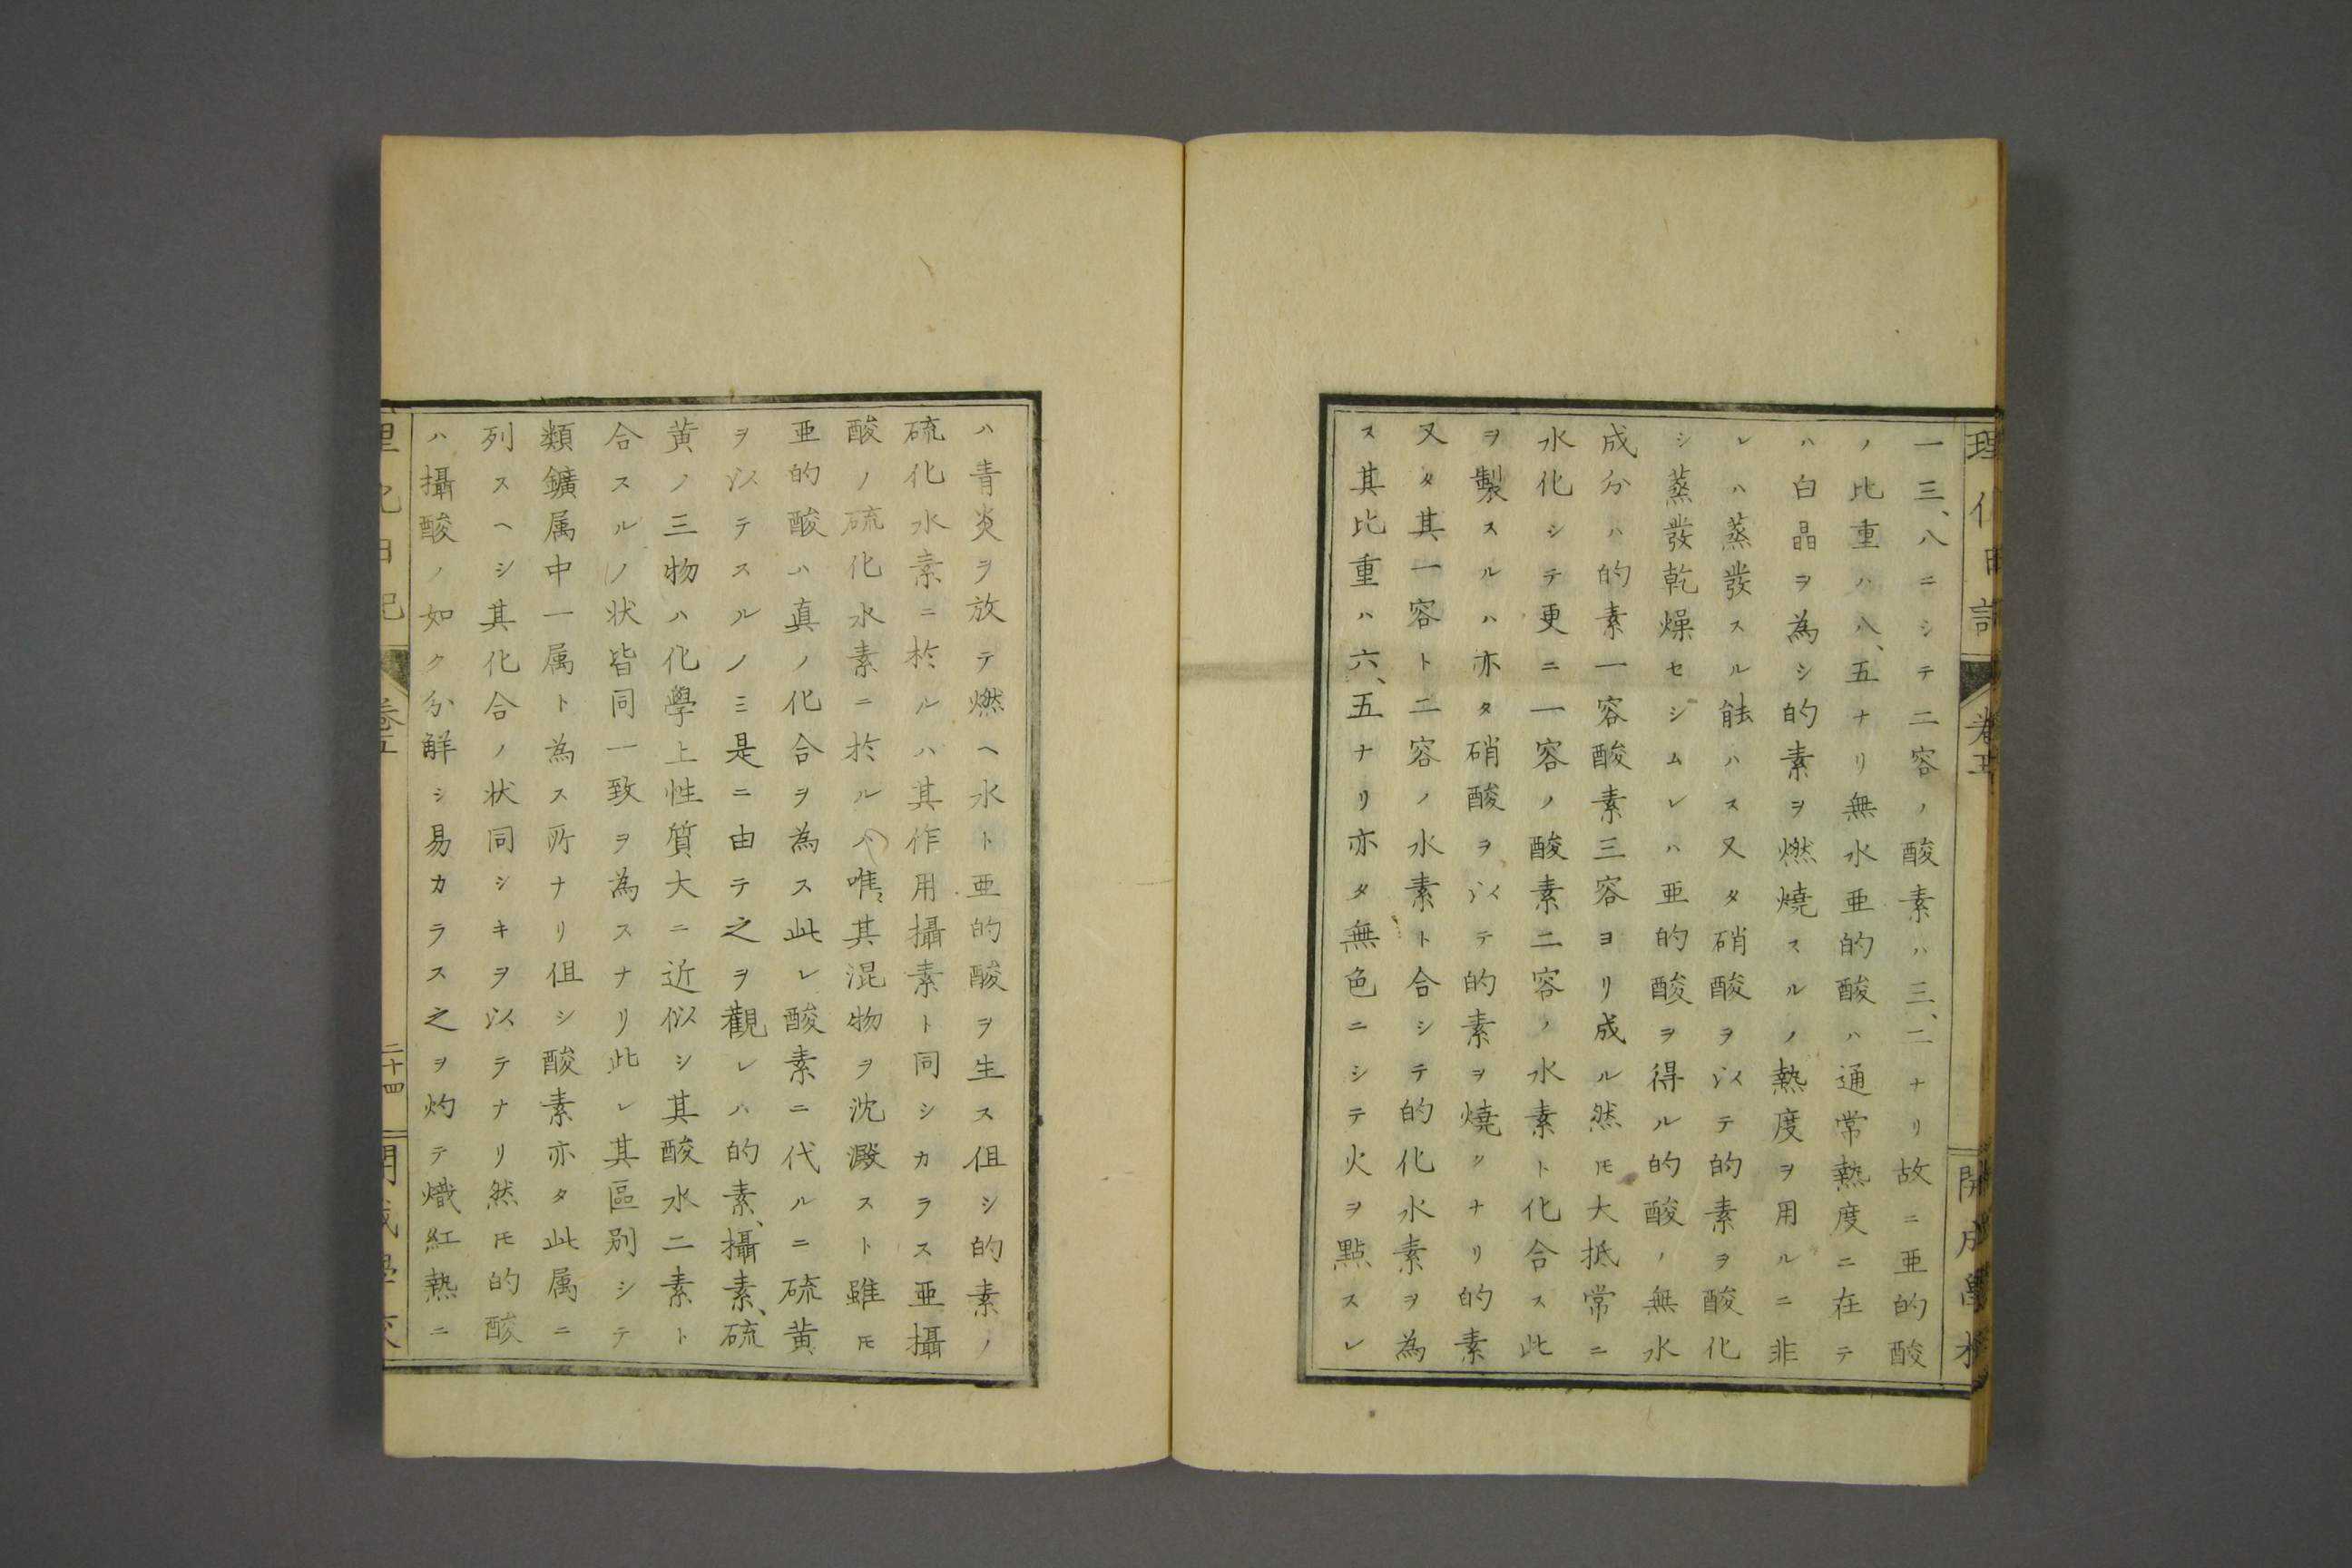 理化日記
卷五
開成學校
一三、八ニシテ二容ノ酸素ハ三、二ナリ故ニ亜的酸
ノ比重ハ八、五ナリ無水亜的酸ハ通常熱度ニ在テ
ハ白晶ヲ為シ的素ヲ燃燒スルノ熱度ヲ用ルニ非
レハ蒸發スル能ハス又タ硝酸ヲ以テ的素ヲ酸化
シ蒸發乾燥セシムレハ亜的酸ヲ得ル的酸ノ無水
成分ハ的素一容酸素三容ヨリ成ル然㆑大抵常ニ
水化シテ更ニ一容ノ酸素二容ノ水素ト化合ス此
ヲ製スルハ亦タ硝酸ヲ以テ的素ヲ燒シナリ的素
又タ其一容ト二容ノ水素ト合シテ的化水素ヲ為
ス其比重ハ六、五ナリ亦タ無色ニシテ火ヲ點スレ
ハ青炎ヲ放テ燃ヘ水ト亜的酸ヲ生ス但シ的素ノ
硫化水素ニ於ルハ其作用攝素ト同シカラス亜攝
酸ノ硫化水素ニ於ルハ唯其混物ヲ沈澱スト雖𪜈
亜的酸ハ真ノ化合ヲ為ス此レ酸素ニ代ルニ硫黄
ヲ以テスルノミ是ニ由テ之ヲ觀レハ的素、攝素、硫
黄ノ三物ハ化學上性質大ニ近似シ其酸水二素ト
合スルノ状皆同一致ヲ為スナリ此レ其區別シテ
類鑛属中一属ト為ス所ナリ但シ酸素亦タ此属ニ
列スヘシ其化合ノ状同シキヲ以テナリ然𪜈的酸
ハ攝酸ノ如ク分解シ易カラス之ヲ灼テ熾紅熱ニ
理化日記
卷五
二十四
開成學校